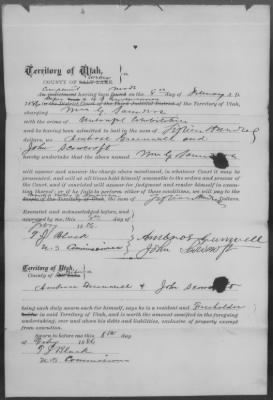 Territory of Utah,
COUNTY OF
having been made on the 8th day of February A. D.
of the Territory of Utah,
charging Wm G. Saunders
with the crime of Unlawful Cohabitation
and he having been admitted to bail in the sum of Fifteen Hundred
dollars, we Ambrose Greenwell and
John Seowcroft
hereby undertake that the above named Wm G Saunders
will appear and answer the charge above mentioned, in whatever Court it may be
prosecuted, and will at all times hold himself amenable to the orders and process of
the Court, and if convicted will appear for judgment and render himself in execu-
tion thereof; or if he fails to perform either of these conditions, will pay to the
Territory of Utah, the sum of Fifteen Dollars.
Executed and acknowledged before, and
approved by me, this 8th day
Feby 1886
T J Black
U. S. Commissioner
Ambros Grenwell
John Scowcroft
Territory of Utah,
County of
Ambrose Greenwell & John Scowcroft
being each duly sworn each for himself, says he is a resident and Freeholder
in said Territory of Utah, and is worth the amount specified in the foregoing
undertaking, over and above his debts and liabilities, exclusive of property exempt
from execution.
Sworn to before me this 8th day
of Feby 1886
T J Black
U S Commissioner